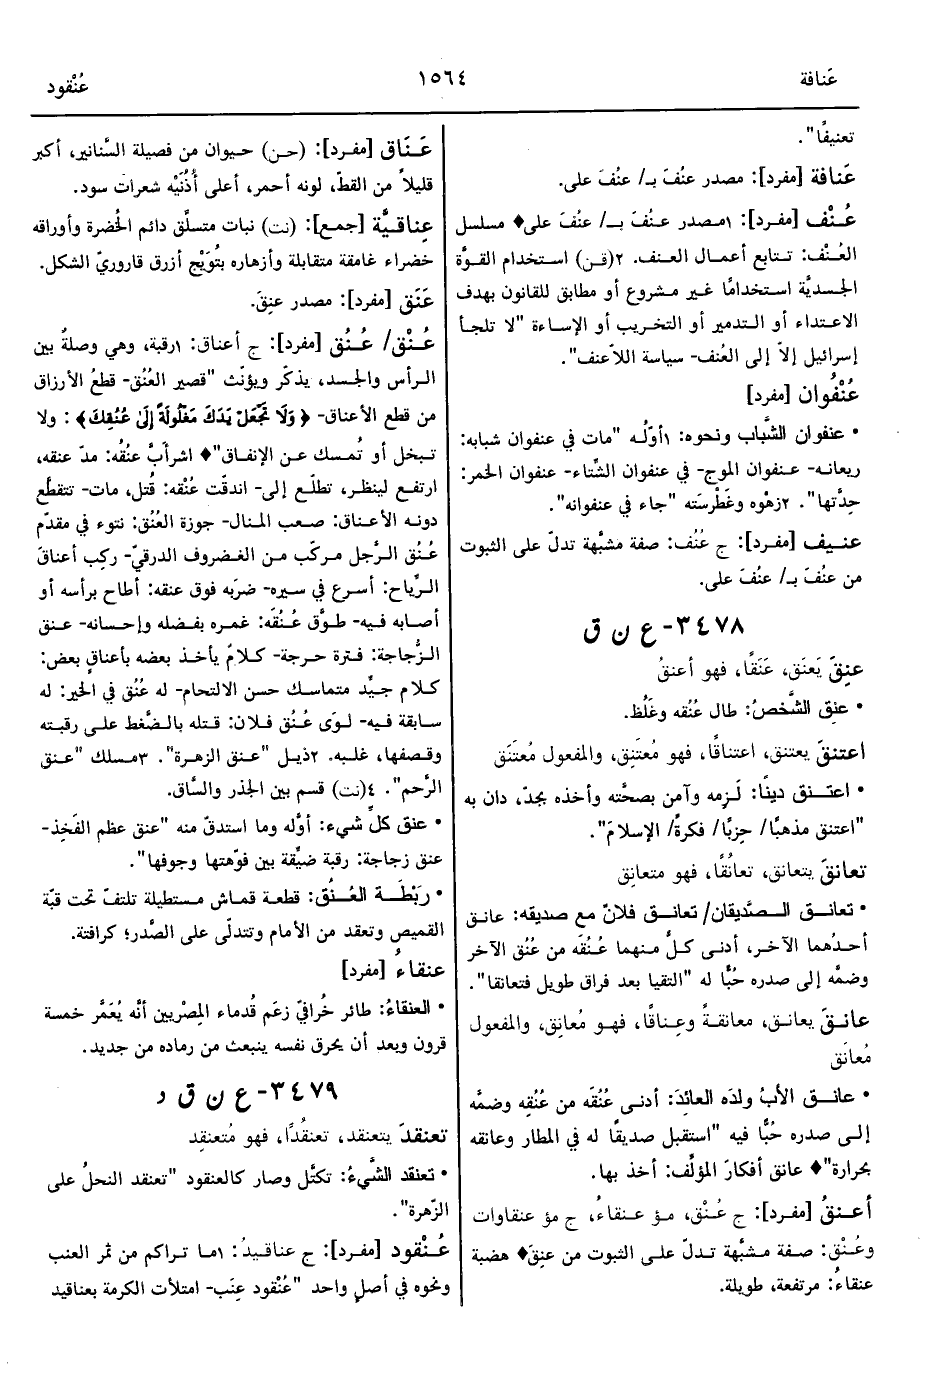 عَنافة
١٥٦٤
عُنْقود
تعنيفًا".
عَنافة [مفرد]: مصدر عنُفَ بـ/ عنُفَ على.
عُنْف [مفرد]: ١مصدر عنُفَ بـ/ عنُفَ على♦ مسلسل
العُنف: تتابع أعمال العنف. ٢(قن) استخدام القوَّة
الجسديَّة استخدامًا غير مشروع أو مطابق للقانون بهدف
الاعتداء أو التدمير أو التخريب أو الإساءة "لا تلجأ
إسرائيل إلاّ إلى العُنف- سياسة اللاّعنف".
عُنْفُوان [مفرد]
• عنفوان الشَّباب ونحوه: ١أوَّلُه "مات في عنفوان شبابه:
ريعانه- عنفوان الموج- في عنفوان الشِّتاء- عنفوان الخمر:
حِدَّتها". ٢زهْوه وغَطْرسَته "جاء في عنفوانه".
عنيف [مفرد]: ج عُنُف: صفة مشبَّهة تدلّ على الثبوت
من عنُفَ بـ/ عنُفَ على.
٣٤٧٨- ع ن ق
عنِقَ يَعنَق، عَنَقًا، فهو أعنقُ
• عنِق الشَّخصُ: طال عُنُقه وغَلُظ.
اعتنقَ يعتنق، اعتناقًا، فهو مُعتَنِق، والمفعول مُعتَنَق
• اعتنق دينًا: لَزِمه وآمن بصحَّته وأخذه بجدّ، دان به
"اعتنق مذهبًا/ حِزبًا/ فكرةً/ الإسلامَ".
تعانقَ يتعانق، تعانُقًا، فهو متعانِق
• تعانق الصَّديقان/ تعانق فلانٌ مع صديقه: عانق
أحدُهما الآخر، أدنى كلٌّ منهما عُنُقَه من عُنُق الآخر
وضمَّه إلى صدره حُبًّا له "التقيا بعد فراق طويل فتعانقا".
عانقَ يعانق، معانقةً وعِناقًا، فهو مُعانِق، والمفعول
مُعانَق
• عانق الأبُ ولدَه العائدَ: أدنى عُنُقَه من عُنُقِه وضمَّه
إلى صدره حُبًّا فيه "استقبل صديقًا له في المطار وعانقه
بحرارة"♦ عانق أفكارَ المؤلِّف: أخذ بها.
أعنقُ [مفرد]: ج عُنْق، مؤ عنقاءُ، ج مؤ عنقاوات
وعُنْق: صفة مشبَّهة تدلّ على الثبوت من عنِقَ♦ هضبة
عنقاءُ: مرتفعة، طويلة.
عَنَاق [مفرد]: (حن) حيوان من فصيلة السَّنانير، أكبر
قليلاً من القطّ، لونه أحمر، أعلى أُذُنَيْه شعرات سود.
عِناقيَّة [جمع]: (نت) نبات متسلِّق دائم الخُضرة وأوراقه
خضراء غامقة متقابلة وأزهاره بتُوَيْج أزرق قاروريّ الشكل.
عَنَق [مفرد]: مصدر عنِقَ.
عُنْق/ عُنُق [مفرد]: ج أعناق: ١رقبة، وهي وصلةٌ بين
الرأس والجسد، يذكّر ويؤنّث "قصير العُنُق- قطعُ الأرزاق
من قطع الأعناق- ﴿وَلَا تَجْعَلْ يَدَكَ مَغْلُولَةً إِلَى عُنُقِكَ﴾: ولا
تبخل أو تُمسك عن الإنفاق"♦ اشرأبَّ عنُقُه: مدّ عنقه،
ارتفع لينظر، تطلّع إلى- اندقّت عُنْقه: قُتل، مات- تتقطّع
دونه الأعناق: صعب المنال- جوزة العُنُق: نتوء في مقدّم
عُنُق الرَّجل مركّب من الغضروف الدرقيّ- ركِب أعناقَ
الرِّياح: أسرع في سيره- ضرَبه فوق عنقه: أطاح برأسه أو
أصابه فيه- طوَّق عُنُقَه: غمره بفضله وإحسانه- عنق
الزُّجاجة: فترة حرجة- كلامٌ يأخذ بعضه بأعناقِ بعض:
كلام جيِّد متماسك حسن الالتحام- له عُنُق في الخير: له
سابقة فيه- لوَى عُنُق فلان: قتله بالضَّغط على رقبته
وقصفها، غلبه. ٢ذيل "عنق الزهرة". ٣مسلك "عنق
الرَّحم". ٤(نت) قسم بين الجذر والسَّاق.
• عنق كلِّ شيء: أوَّله وما استدقّ منه "عنق عظم الفَخِذ-
عنق زجاجة: رقبة ضيِّقة بين فوَّهتها وجوفها".
• رَبْطَة العُنُق: قطعة قماش مستطيلة تلتفّ تحت قبّة
القميص وتعقد من الأمام وتتدلّى على الصَّدر؛ كرافتة.
عنقاءُ [مفرد]
• العنقاءُ: طائر خُرافيّ زعَم قُدماء المِصْريين أنَّه يُعَمَّر خمسة
قرون وبعد أن يحرق نفسه ينبعث من رماده من جديد.
٣٤٧٩- ع ن ق د
تعنقدَ يتعنقد، تعنقُدًا، فهو مُتعنقِد
• تعنقد الشَّيءُ: تكتَّل وصار كالعنقود "تعنقد النحلُ على
الزّهرة".
عُنْقود [مفرد]: ج عناقيدُ: ١ما تراكم من ثمر العنب
ونحوه في أصلٍ واحد "عُنْقود عِنَب- امتلأت الكرمة بعناقيد